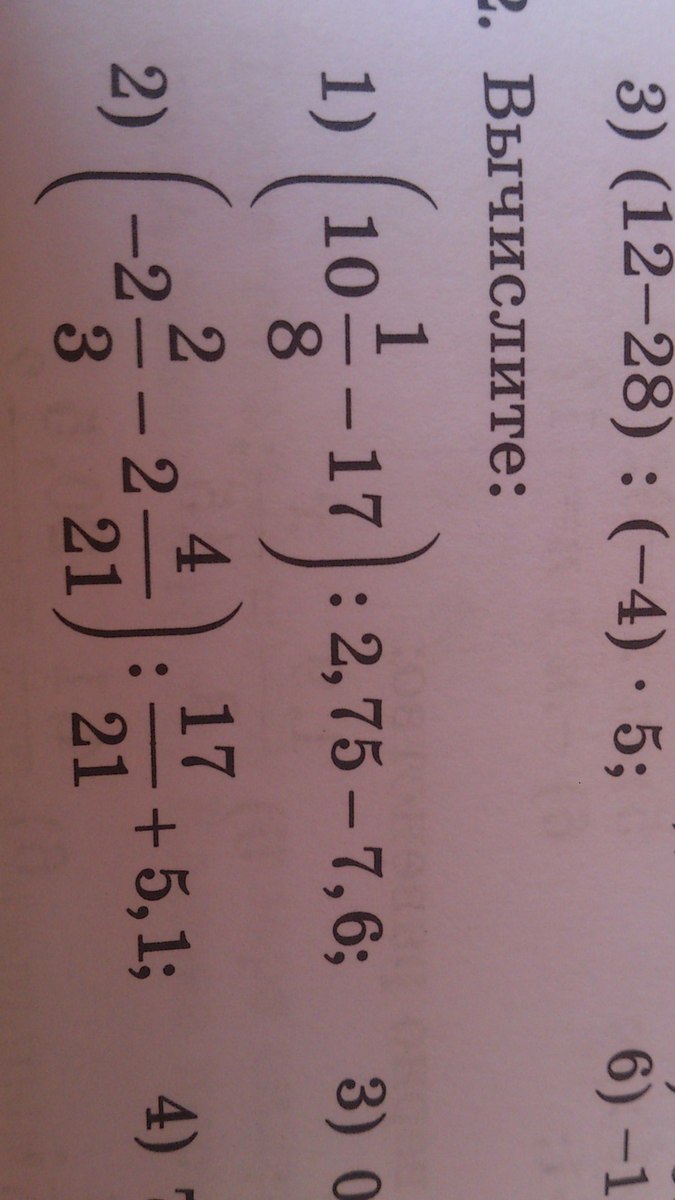 3) (12–28) : (–4) · 5; 6) –1
2. Вычислите:
1) (10 1/8 – 17) : 2,75 – 7,6; 3) 0
2) (–2 2/3 – 2 4/21) : 17/21 + 5,1; 4)